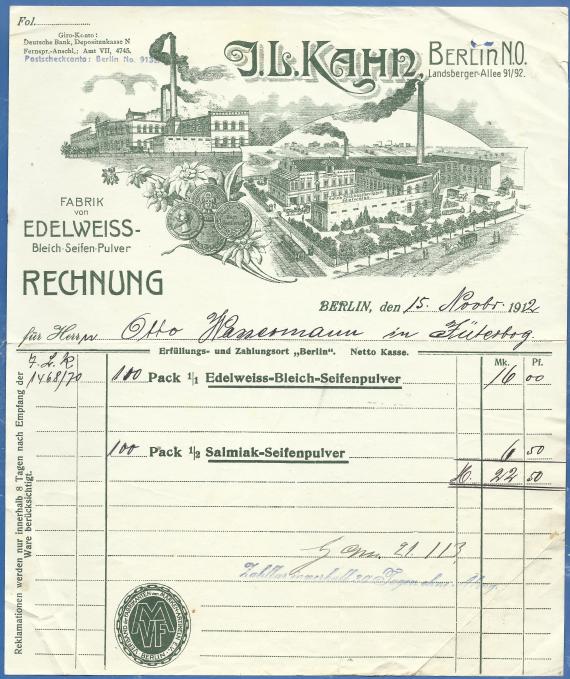 Fol.
Giro-Konto:
Deutsche Bank, Depositenkasse N
Fernspr.-Anschl.: Amt VII, 4745.
Postscheckkonto: Berlin No. 9132
J.L. KAHN, BERLIN N.O.
Landsberger-Allee 91/92.
FABRIK
von
EDELWEISS-
Bleich-Seifen-Pulver
RECHNUNG
BERLIN, den 15. Novbr. 1912
für Herrn Otto Wassermann in Jüterbog.
Erfüllungs- und Zahlungsort „Berlin". Netto Kasse.
Mk. Pf.
J. L. K
1468/70
100 Pack 1/1 Edelweiss-Bleich-Seifenpulver 16 00
100 Pack 1/2 Salmiak-Seifenpulver 6 50
M. 22 50
21/1 13
Reklamationen werden nur innerhalb 8 Tagen nach Empfang der
Ware berücksichtigt.
MVF
BERLIN